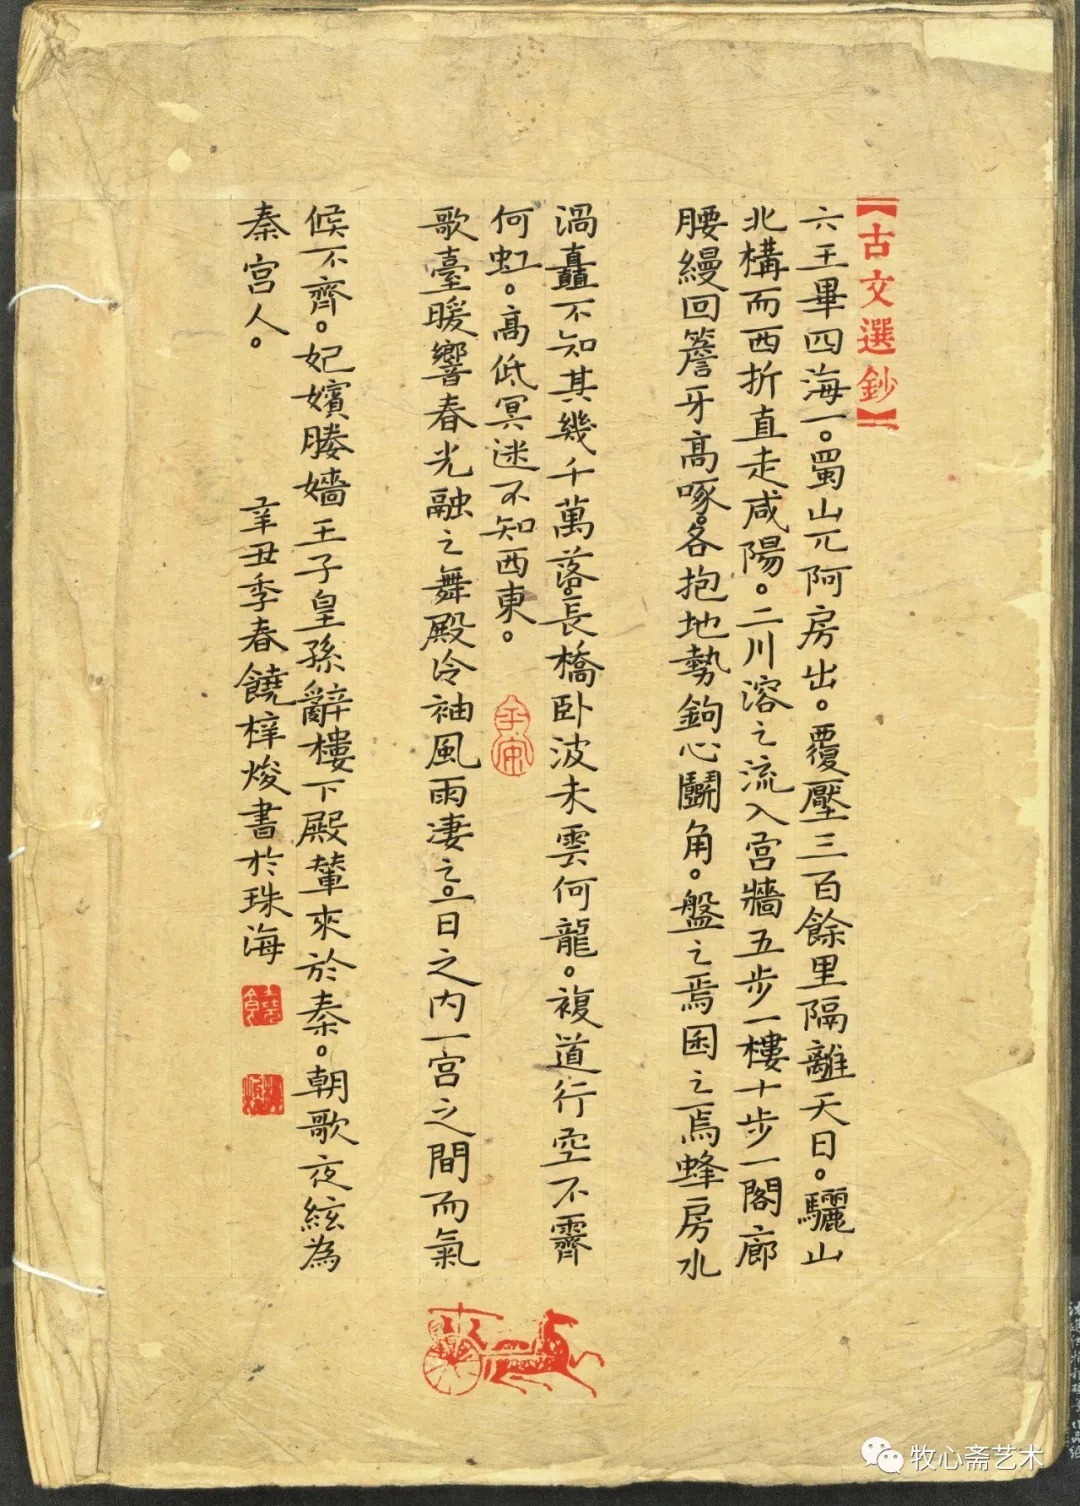 【古文選鈔】
六王畢四海一。蜀山兀阿房出。覆壓三百餘里隔離天日。驪山
北構而西折直走咸陽。二川溶之流入宫牆五步一樓十步一閣廊
腰縵回簷牙高啄。各抱地勢鉤心鬭角。盤之焉困之焉蜂房水
渦矗不知其幾千萬落。長橋卧波未雲何龍。複道行空不霽
何虹。高低冥迷不知西東。
歌臺暖響春光融之舞殿冷袖風雨淒之。一日之内一宫之間而氣
候不齊。妃嬪媵嬙王子皇孫辭樓下殿輦來於秦。朝歌夜絃為
秦宫人。
辛丑季春饒梓焌書於珠海
牧心斋艺术